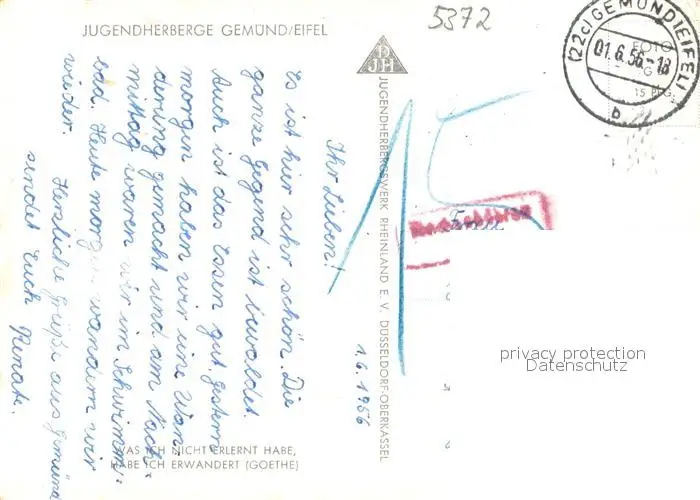 JUGENDHERBERGE GEMÜND/EIFEL
5372
(22c) GEMÜND (EIFEL)
01.6.56-18
b
FOTO
15 PFG.
DJH
JUGENDHERBERGSWERK RHEINLAND E. V. DÜSSELDORF-OBERKASSEL
15
1.6.1956
Ihr Lieben!
Es ist hier sehr schön. Die
ganze Gegend ist bewaldet.
Auch ist das Essen gut. Gestern
morgen haben wir eine Wan-
derung gemacht und am Nach-
mittag waren wir im Schwimm-
bad. Heute morgen wandern wir
wieder.
Herzliche Grüße aus Gemünd
sendet Euch Renate.
WAS ICH NICHT ERLERNT HABE,
HABE ICH ERWANDERT (GOETHE)
privacy protection
Datenschutz